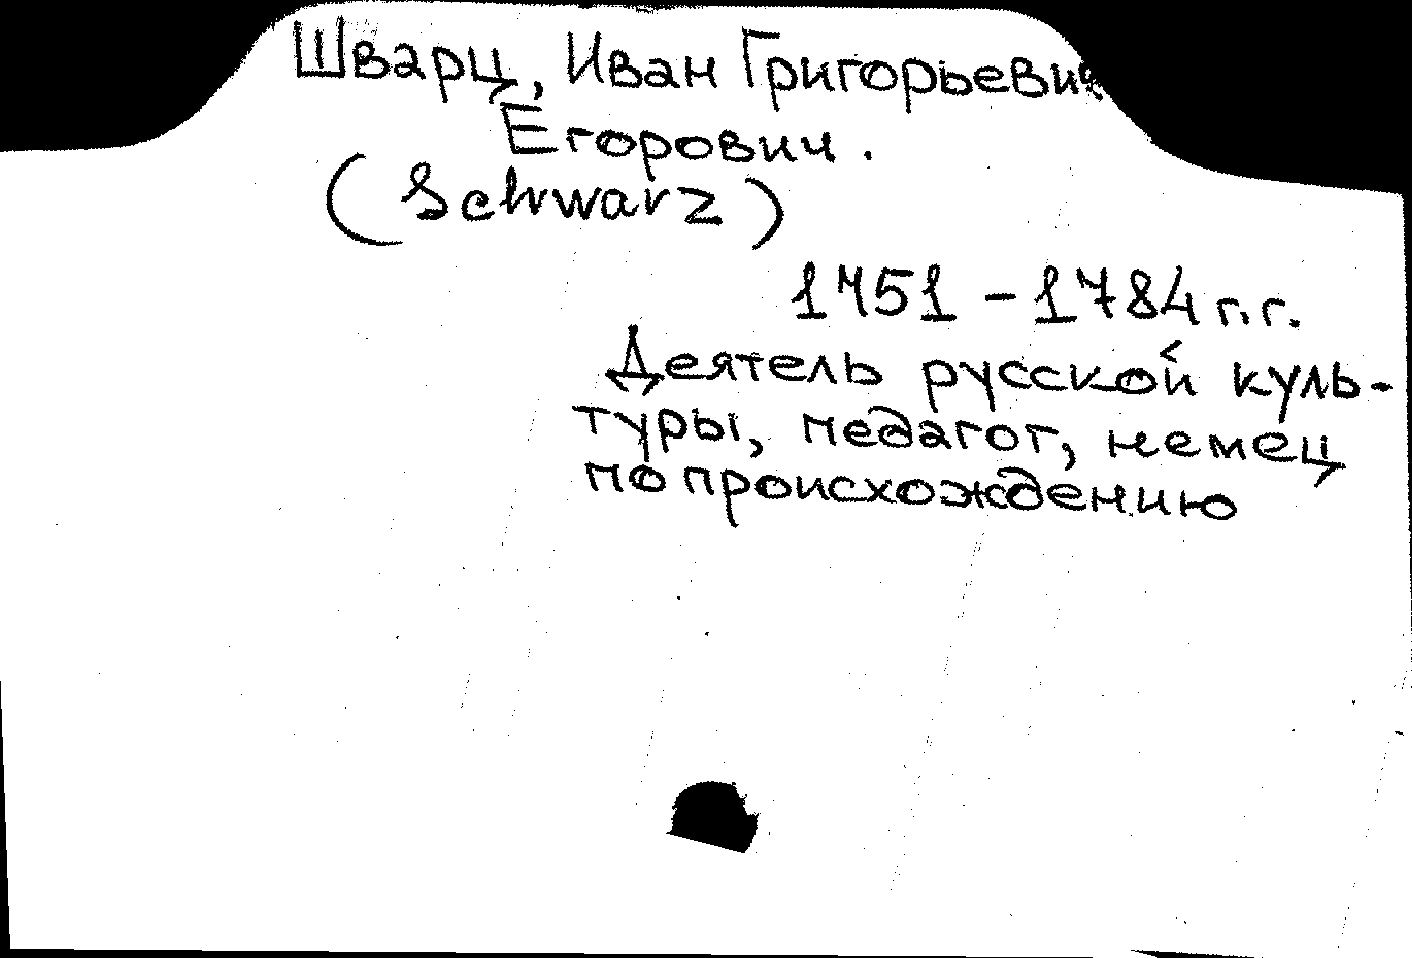 Шварц, Иван Григорьевич
Егорович.
(Schwarz)
1751 - 1784 г.г.
Деятель русской куль-
туры, педагог, немец
по происхождению